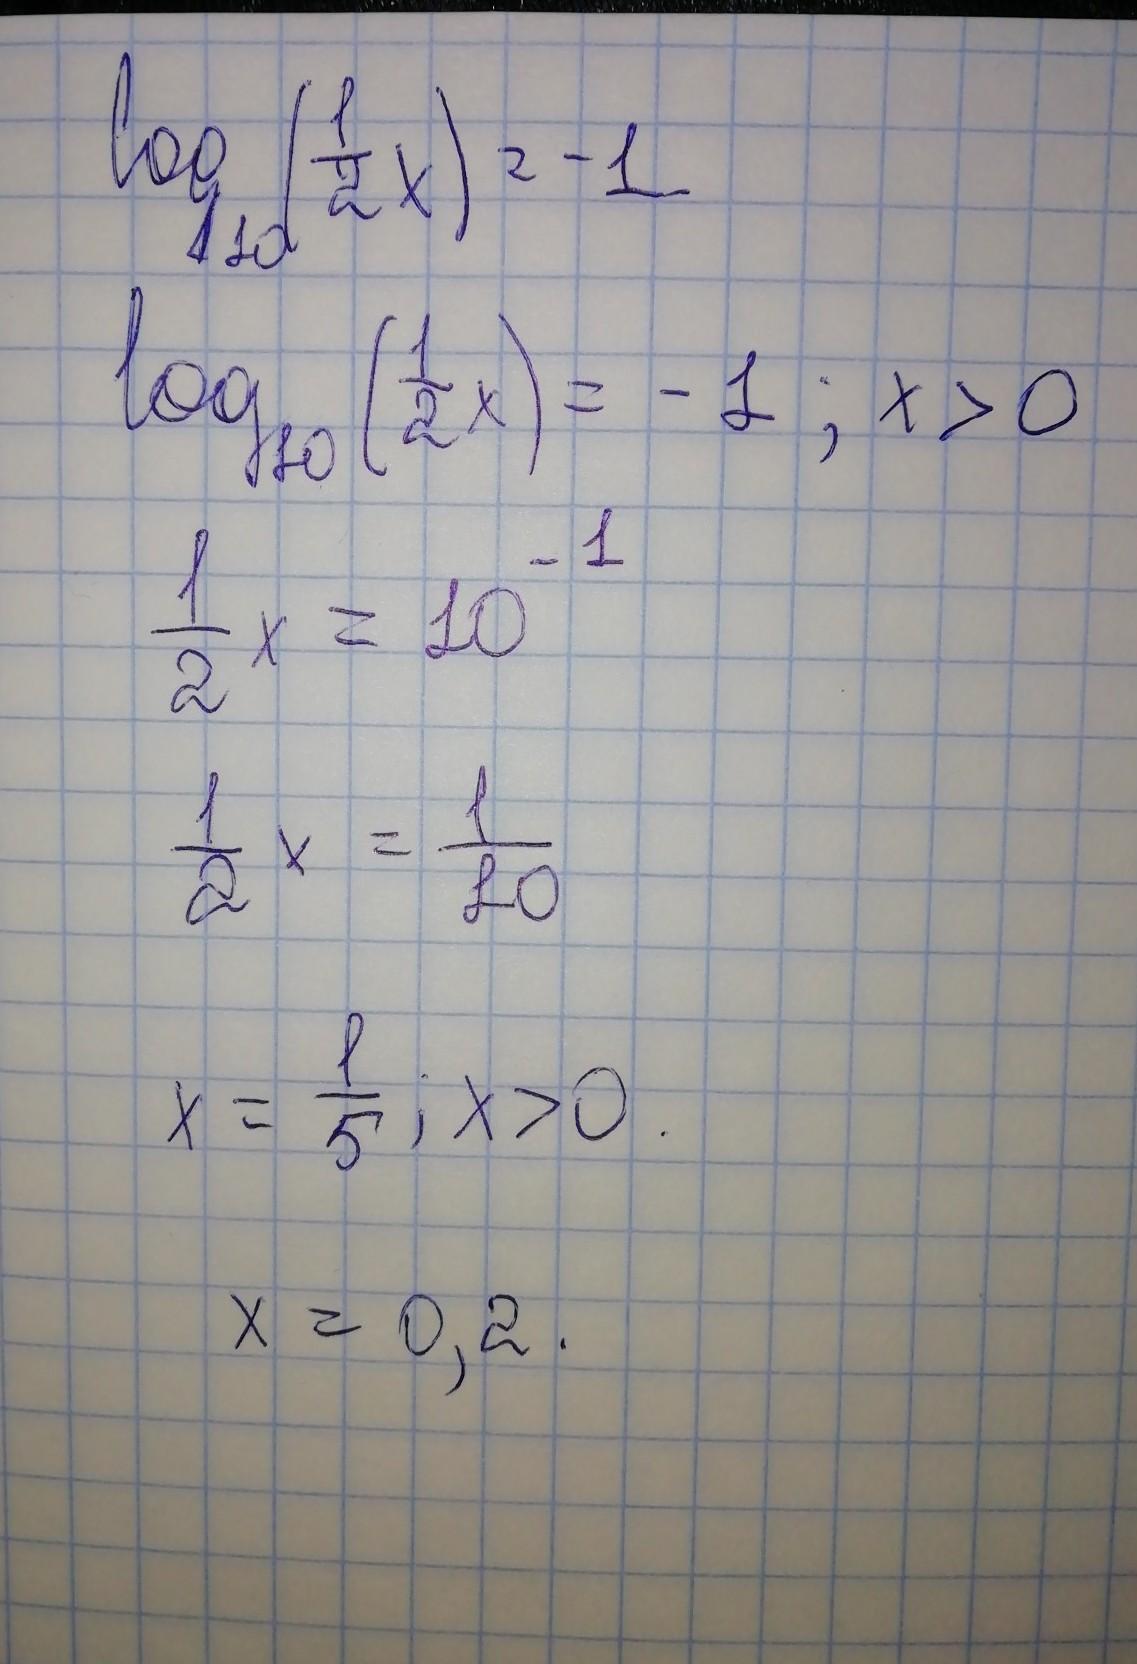 log₁₀(1/2 x) = -1
log₁₀(1/2 x) = -1 ; x > 0
1/2 x = 10⁻¹
1/2 x = 1/10
x = 1/5 ; x > 0.
x = 0,2.